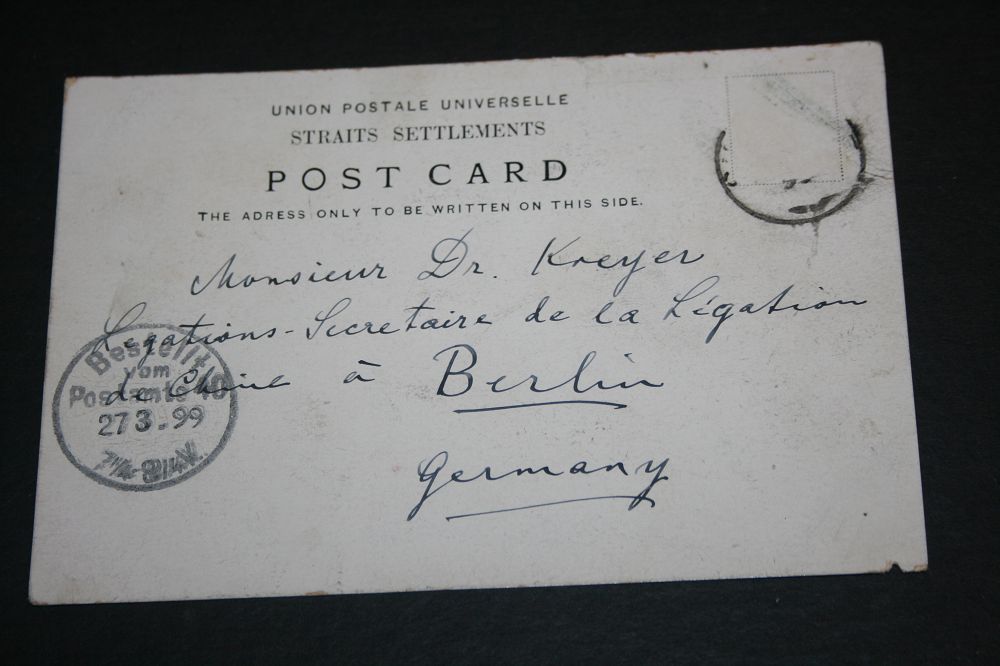 UNION POSTALE UNIVERSELLE
STRAITS SETTLEMENTS
POST CARD
THE ADRESS ONLY TO BE WRITTEN ON THIS SIDE.
Monsieur Dr. Kreyer
Légations-Secretaire de la Légation
de Chine à Berlin
Germany
Bestellt
vom
Postamte 10
27 3. 99